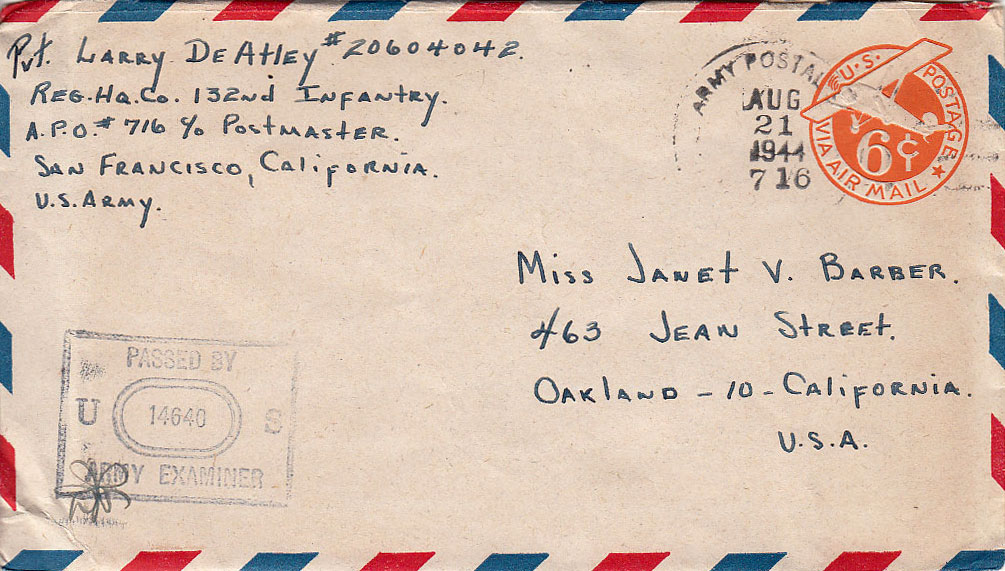 Pvt. Larry DeAtley #20604042.
Reg. Hq. Co. 132nd Infantry.
A.P.O. #716 c/o Postmaster.
San Francisco, California.
U.S. Army.
ARMY POSTAL
AUG
21
1944
716
U.S. POSTAGE
6¢
VIA AIR MAIL
Miss Janet V. Barber.
463 Jean Street.
Oakland - 10 - California.
U.S.A.
PASSED BY
U 14640 S
ARMY EXAMINER